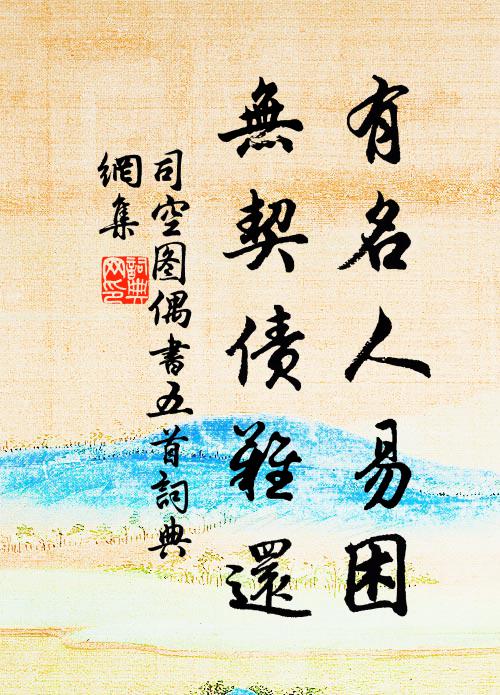 有名人易困
無契債難還
司空图偶書五首詞典
網集
詞典
网印